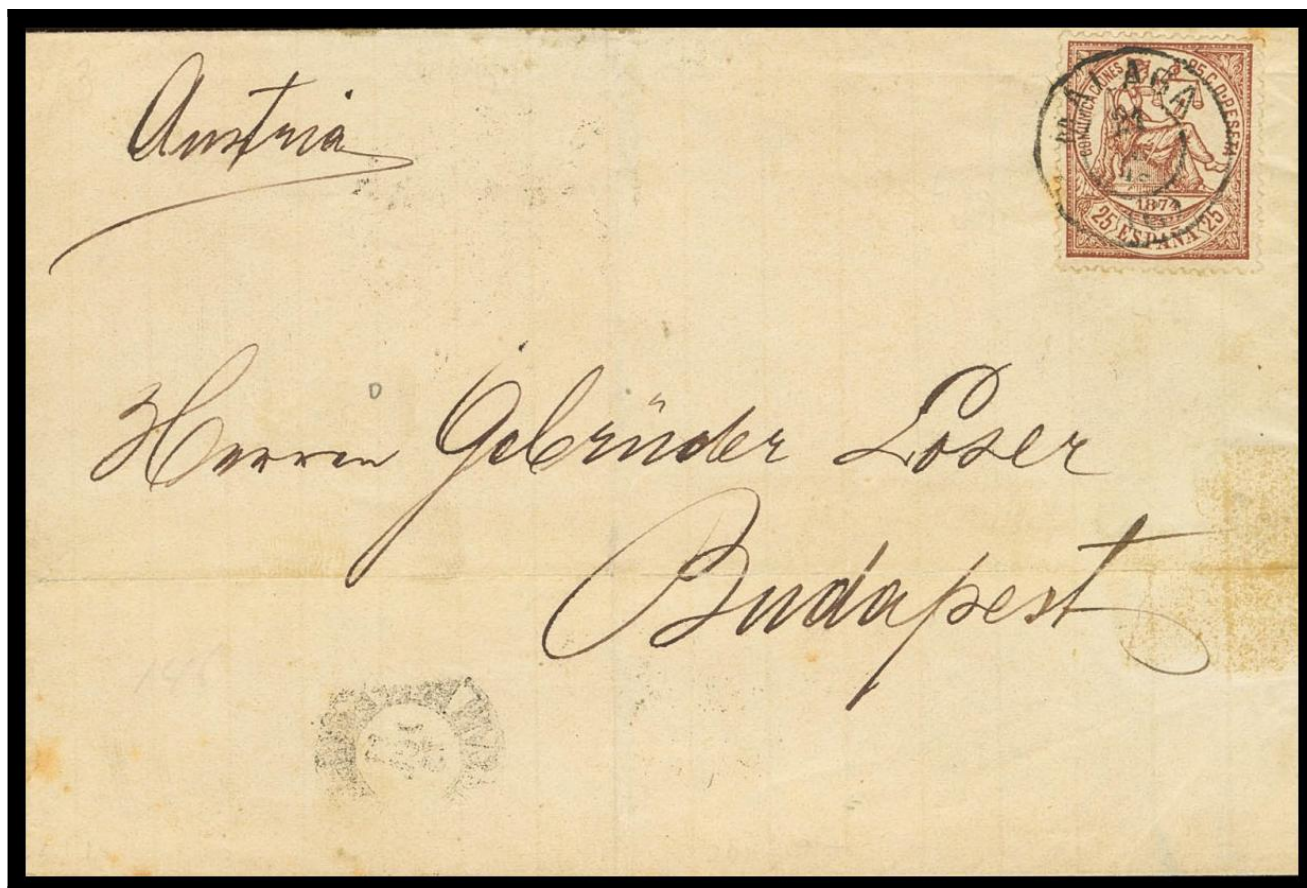 Austria
COMUNICACIONES 25 C. D. PESETA
MALAGA
1874
25 ESPAÑA 25
Herren Gebrüder Loser
Budapest